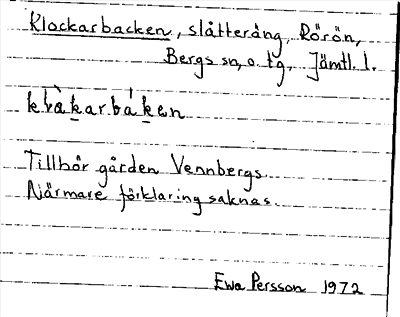 Klockarbacken, slåtteräng, Rörön,
Bergs sn, o. tg, Jämtl. l.
klåkarbáken
Tillhör gården Vennbergs.
Närmare förklaring saknas.
Ewa Persson 1972